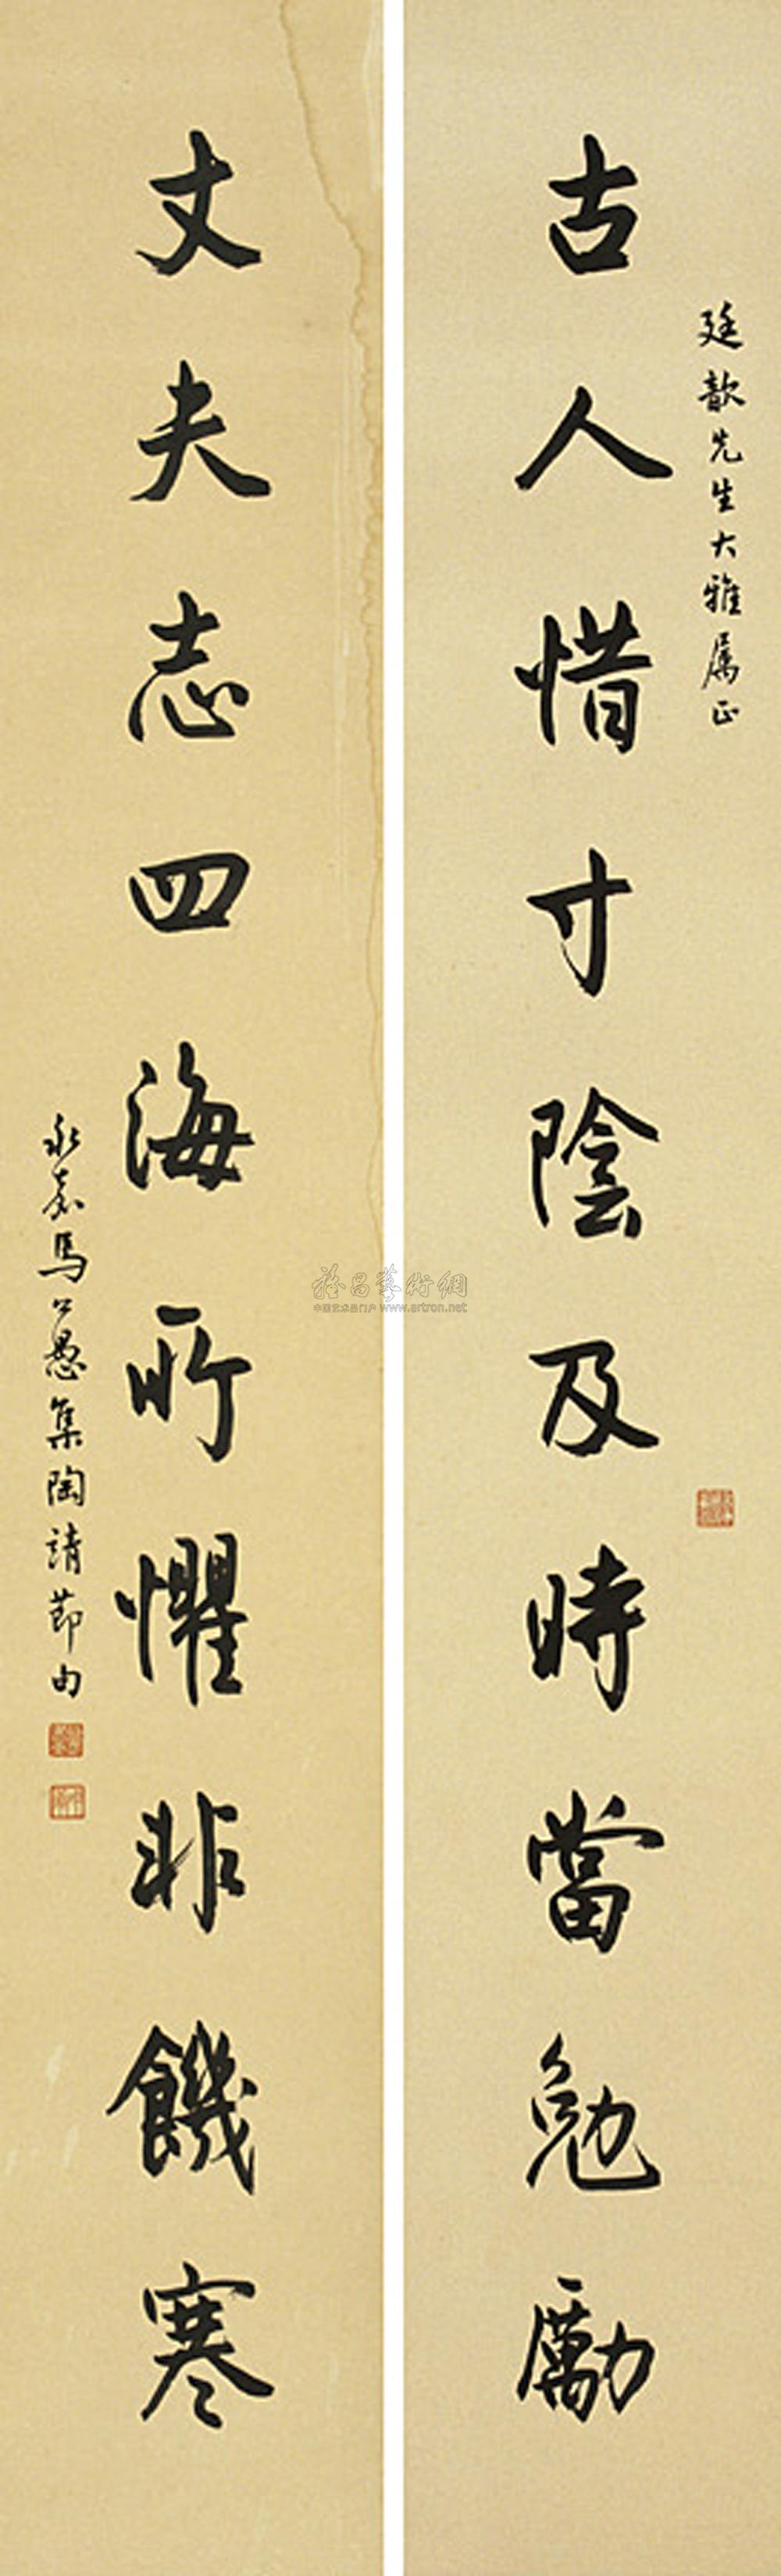 廷歆先生大雅属正
古人惜寸陰及時當勉勵
丈夫志四海所懼非饑寒
永嘉馬公愚集陶靖節句
雅昌藝術網
中国艺术品门户 www.artron.net